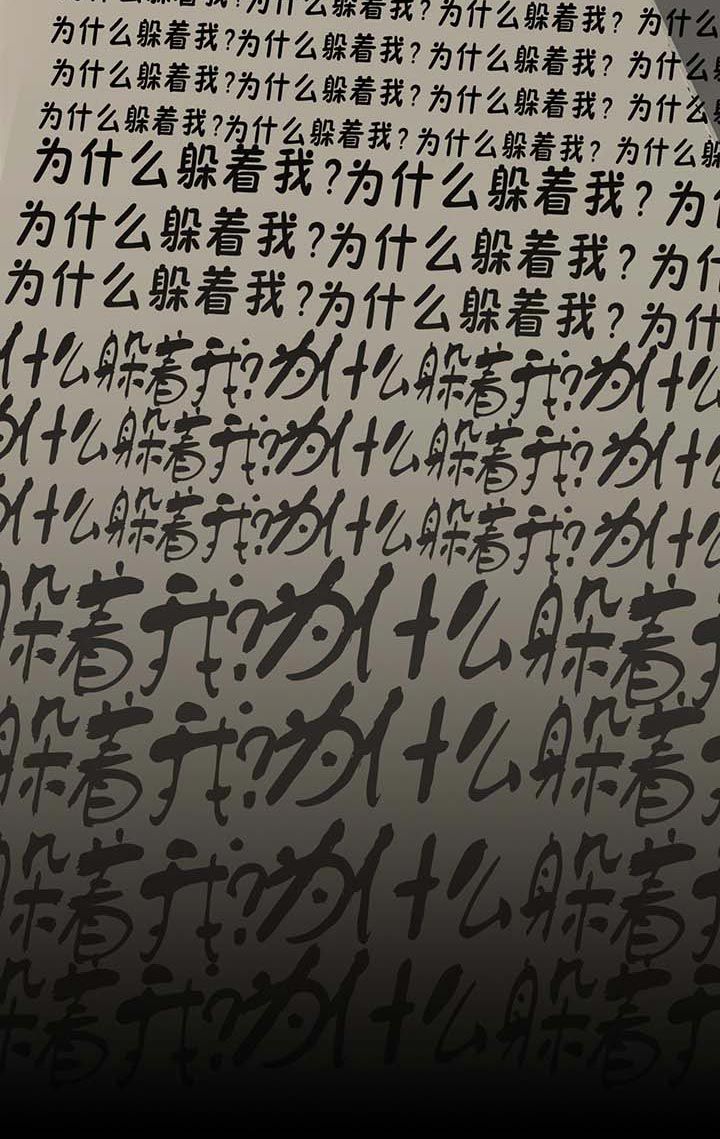 为什么躲着我?为什么躲着我?为什么躲着我?为什么
为什么躲着我?为什么躲着我?为什么躲着我?为什么
为什么躲着我?为什么躲着我?为什么躲着我?为什么
为什么躲着我?为什么躲着我?为什么躲着我?为什么躲
为什么躲着我?为什么躲着我?为什
为什么躲着我?为什么躲着我?为什
为什么躲着我?为什么躲着我?为什
什么躲着我?为什么躲着我?为什么
为什么躲着我?为什么躲着我?为什么
什么躲着我?为什么躲着我?为什么
躲着我?为什么躲着
躲着我?为什么躲着
躲着我?为什么躲着
躲着我?为什么躲着